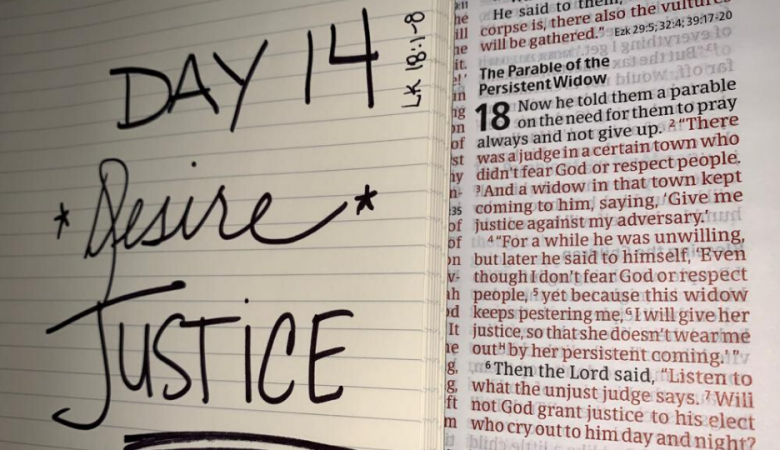 DAY 14
LK 18:1-8
*Desire*
JUSTICE
He said to them,
corpse is, there also the vultures
will be gathered." Ezk 29:5; 32:4; 39:17-20
The Parable of the
Persistent Widow
18 Now he told them a parable
on the need for them to pray
always and not give up. 2 "There
was a judge in a certain town who
didn't fear God or respect people.
3 And a widow in that town kept
coming to him, saying, 'Give me
justice against my adversary.'
4 "For a while he was unwilling,
but later he said to himself, 'Even
though I don't fear God or respect
people, 5 yet because this widow
keeps pestering me, G I will give her
justice, so that she doesn't wear me
out H by her persistent coming.' "
6 Then the Lord said, "Listen to
what the unjust judge says. 7 Will
not God grant justice to his elect
who cry out to him day and night?